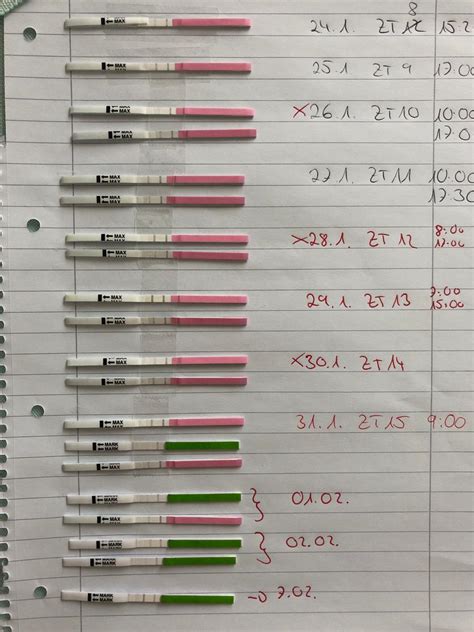 8
MAX 24.1. ZT 12 15:2
MAX 25.1 ZT 9 17:00
MAX x26.1. ZT10 10:00
MAX 17:0
MAX 27.1. ZT11 10:00
MAX 17:30
MAX x28.1. ZT 12 8:00
MAX 17:00
MAX 29.1. ZT 13 7:00
MAX 15:00
MAX x30.1. ZT14
MAX
MAX 31.1. ZT15 9:00
MARK
MAX
MARK 01.02.
MAX
MARK 02.02.
MARK
MARK 7.02.